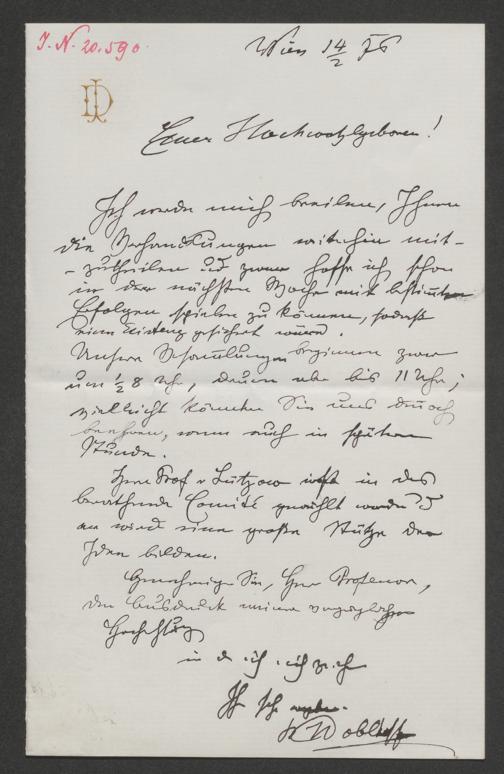 I. N. 20.590.
Wien 14/2 76
JD
Euer Hochwohlgeboren!
Ich werde mich beeilen, Ihnen
die Verhandlungen weiterhin mit-
-zutheilen und zwar hoffe ich schon
in der nächsten Woche mit bestimmten
Erfolgen spielen zu können, sodaß
eine Existenz gesichert wäre.
Unsere Versammlungen beginnen zwar
um ½ 8 Uhr, dauern aber bis 11 Uhr;
vielleicht könnten Sie uns doch
beehren, wenn auch in später
Stunde.
Herr Prof v Lützow ist in das
berathende Comité gewählt worden
er wird eine große Stütze der
Idee bilden.
Genehmigen Sie, Herr Professor,
den Ausdruck meiner vorzüglichen
Hochachtung
in der ich
Ihr
Doblhoff